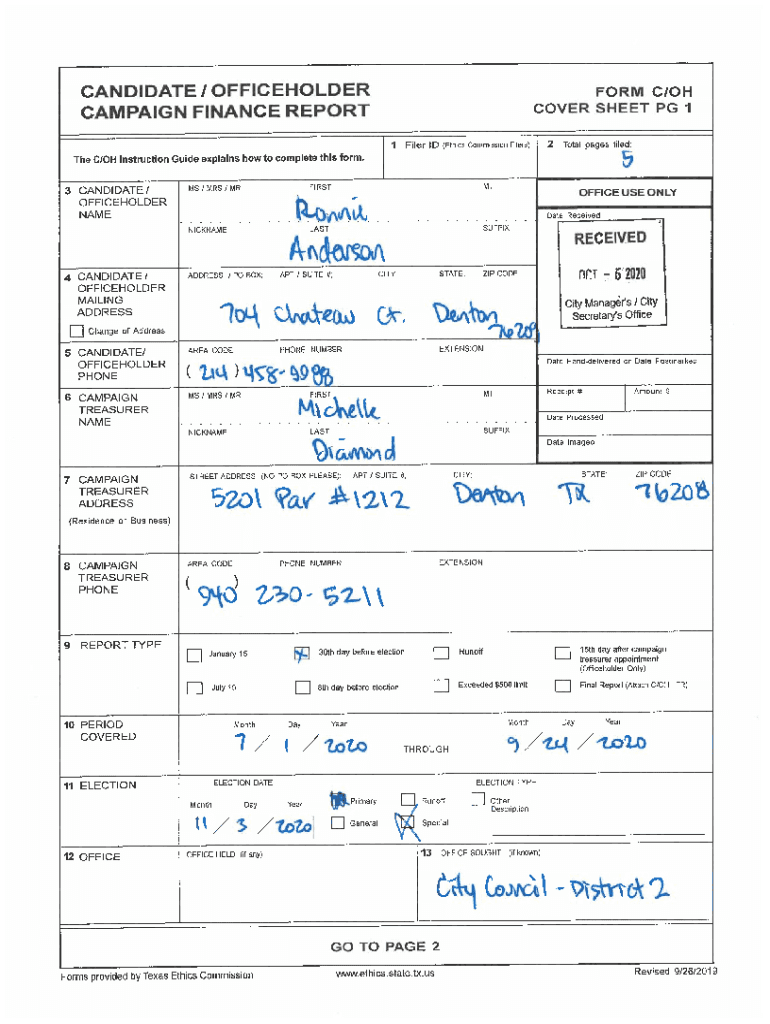 CANDIDATE / OFFICEHOLDER
CAMPAIGN FINANCE REPORT
FORM C/OH
COVER SHEET PG 1
The C/OH Instruction Guide explains how to complete this form.
1 Filer ID (Ethics Commission Filers)
2 Total pages filed:
5
3 CANDIDATE / OFFICEHOLDER NAME
MS / MRS / MR FIRST MI
Ronnie
NICKNAME LAST SUFFIX
Anderson
OFFICE USE ONLY
Date Received
RECEIVED
OCT - 5 2020
City Manager's / City
Secretary's Office
4 CANDIDATE / OFFICEHOLDER MAILING ADDRESS
Change of Address
ADDRESS / PO BOX; APT / SUITE #; CITY; STATE; ZIP CODE
704 Chateau Ct. Denton
76209
5 CANDIDATE/ OFFICEHOLDER PHONE
AREA CODE PHONE NUMBER EXTENSION
(214) 458-9988
Date Hand-delivered or Date Postmarked
Receipt # Amount $
Date Processed
Date Imaged
6 CAMPAIGN TREASURER NAME
MS / MRS / MR FIRST MI
Michelle
NICKNAME LAST SUFFIX
Diamond
7 CAMPAIGN TREASURER ADDRESS
(Residence or Business)
STREET ADDRESS (NO PO BOX PLEASE); APT / SUITE #; CITY; STATE; ZIP CODE
5201 Par #1212 Denton TX 76208
8 CAMPAIGN TREASURER PHONE
AREA CODE PHONE NUMBER EXTENSION
(940) 230-5211
9 REPORT TYPE
January 15 30th day before election Runoff 15th day after campaign treasurer appointment (Officeholder Only)
July 15 8th day before election Exceeded $500 limit Final Report (Attach C/OH - FR)
10 PERIOD COVERED
Month Day Year Month Day Year
7 / 1 / 2020 THROUGH 9 / 24 / 2020
11 ELECTION
ELECTION DATE ELECTION TYPE
Month Day Year
11 / 3 / 2020
Primary Runoff Other Description
General Special
12 OFFICE
OFFICE HELD (if any)
13 OFFICE SOUGHT (if known)
City Council - District 2
GO TO PAGE 2
Forms provided by Texas Ethics Commission www.ethics.state.tx.us Revised 9/26/2019